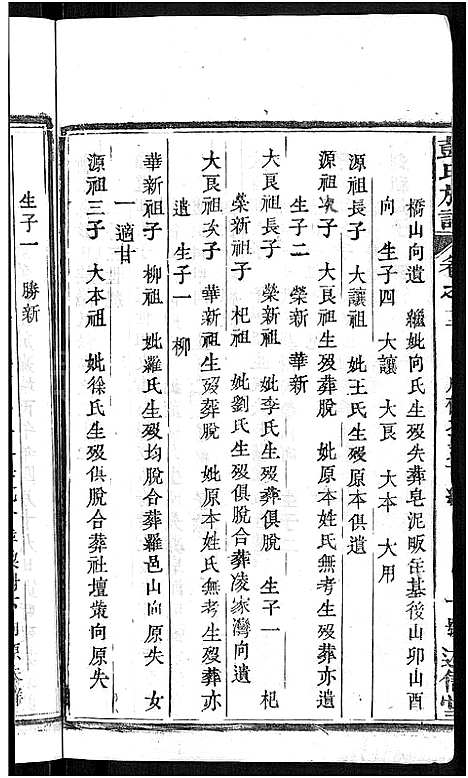 彭氏族譜 卷之三
橋山向遺 繼妣向氏生歿失葬皂泥畈住基後山卯山酉
向 生子四 大讓 大良 大本 大用
源祖長子 大讓祖 妣王氏生歿原本俱遺
源祖次子 大良祖生歿葬脫 妣原本姓氏無考生歿葬亦遺
生子二 榮新 華新
大良祖長子 榮新祖 妣李氏生歿葬俱脫 生子一 杞
榮新祖子 杞祖 妣劉氏生歿俱脫合葬凌家灣向遺
大良祖次子 華新祖生歿葬脫 妣原本姓氏無考生歿葬亦
遺 生子一 柳
華新祖子 柳祖 妣羅氏生歿均脫合葬羅邑山向原失 女
一 適甘
源祖三子 大本祖 妣徐氏生歿俱脫合葬社壇叢向原失
生子一 勝新